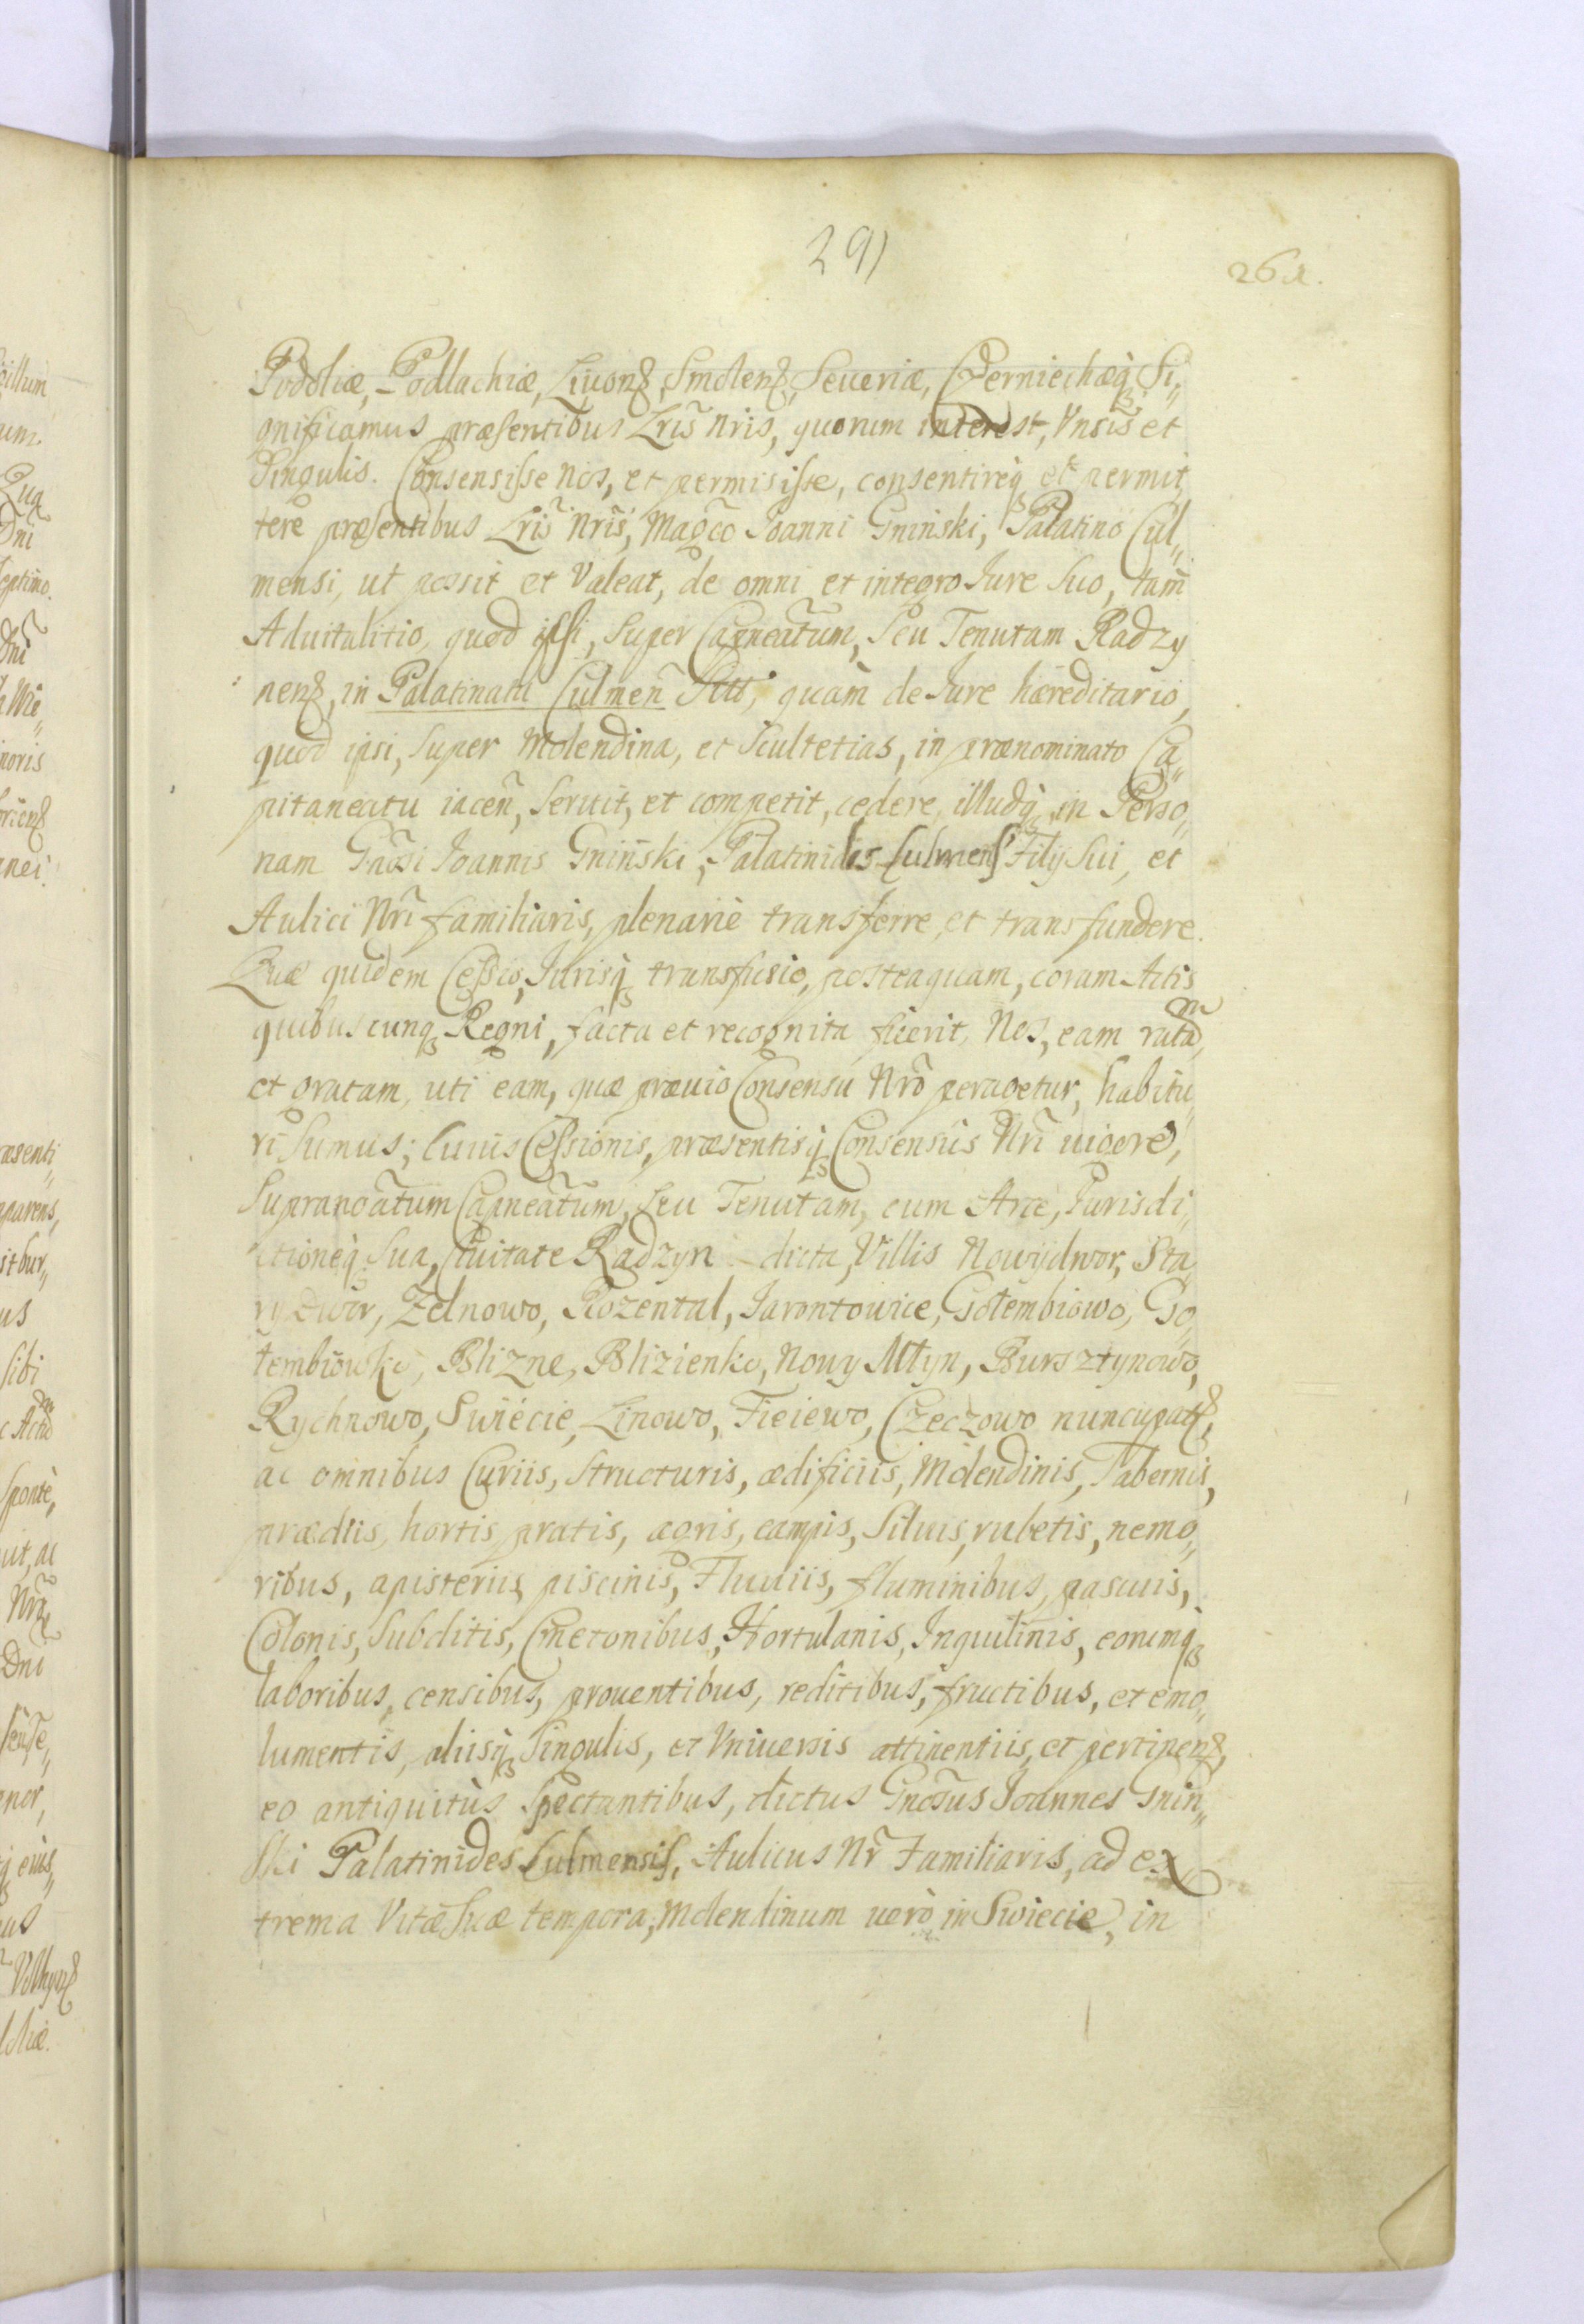 291
261.
Podoliæ, Podlachiæ, Liuonꝫ, Smolenꝫ, Seueriæ, Czerniechæq̀ꝫ Si„
gnificamus præsentibus Lris̃ Nris̃, quorum interest, Vnsis̃ et
Singulis. Consensisse Nos, et permisisse, consentireq̀ꝫ et permit„
tere præsentibus Lris̃ Nris̃, Magc̃o Joanni Gniński, Palatino Cul„
mensi, ut possit et Valeat, de omni et integro Jure Suo, tam̃
Aduitalitio, quod ipsi, Super Capneat̃um, Seu Tenutam Radzy
nenꝫ, in Palatinatu Culmeñ Sitt, quàm de Jure hæreditario,
quod ipsi, Super Molendina, et Scultetias, in prænominato Ca„
pitaneatu iaceñ, Seruit, et competit, cedere, illudq̀ꝫ in Perso„
nam Gñosi Joannis Gniński, Palatinidis Culmens Filÿ Sui, et
Aulici Nrĩ familiaris, plenariè transferre, et transfundere.
Quæ quidem Cessio, Jurisq̀ꝫ transfusio, posteaquam, coram Actis
quibuscunqꝫ Regni, facta et recognita fuerit, Nos, eam ratam,
et gratam, uti eam, quæ præuio Consensu Nrõ peragetur, habitu„
ri Sumus; Cuius Cessionis, præsentisq̀ꝫ Consensûs Nrĩ uigore,
Supranoat̃um Capneat̃um, Seu Tenutam, cum Arce, Jurisdi„
ctioneq̀ꝫ Sua, Ciuitate Radzyn dicta, Villis Nowydwor, Sta„
ry Dwor, Zelnowo, Rozental, Jarontowice, Gołembiowo, Go„
łembiowko, Blizne, Blizienko, Nowy Młyn, Bursztynowo,
Rychnowo, Swiécie, Linowo, Fieiewo, Czeczowo nuncupatꝫ,
ac omnibus Curiis, Structuris, ædificiis, Molendinis, Tabernis,
prædiis, hortis, pratis, agris, campis, Siluis, rubetis, nemo„
ribus, apisteriis, piscinis, Fluuiis, fluminibus, pascuis,
Colonis, Subditis, Cmetonibus, Hortulanis, Inquilinis, eorumq̀ꝫ
laboribus, censibus, prouentibus, reditibus, fructibus, et emo„
lumentis, aliisq̀ꝫ Singulis, et Vniuersis attinentiis, et pertinenꝫ,
eo antiquitùs Spectantibus, dictus Gnos̃us Joannes Gnin„
ski Palatinides Culmensis, Aulicus Nr̃ Familiaris, ad ex
trema Vitæ Suæ tempora, Molendinum uerò in Swiecie, in